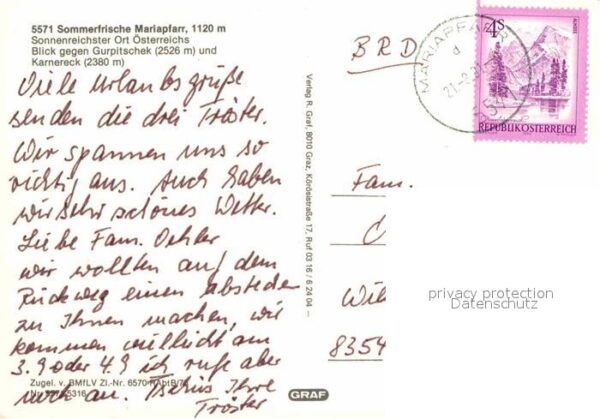 5571 Sommerfrische Mariapfarr, 1120 m
Sonnenreichster Ort Österreichs
Blick gegen Gurpitschek (2526 m) und
Karnereck (2380 m)
Viele Urlaubsgrüße
senden die drei Tröster.
Wir spannen uns so
richtig aus. Auch haben
wir sehr schönes Wetter.
Liebe Fam. Oehler
wir wollten auf dem
Rückweg einen abstecher
zu Ihnen machen, wir
kommen vielleicht am
3.9 oder 4.9 ich rufe aber
noch an. Tschüs Ihre
Tröster
Zugel. v. BMfLV Zl.-Nr. 6570
Verlag R. Graf, 8010 Graz, Körösistraße 17, Ruf 03 16 / 6 24 04
GRAF
BRD
MARIAPFARR
4S
REPUBLIK ÖSTERREICH
Fam.
8354
privacy protection
Datenschutz